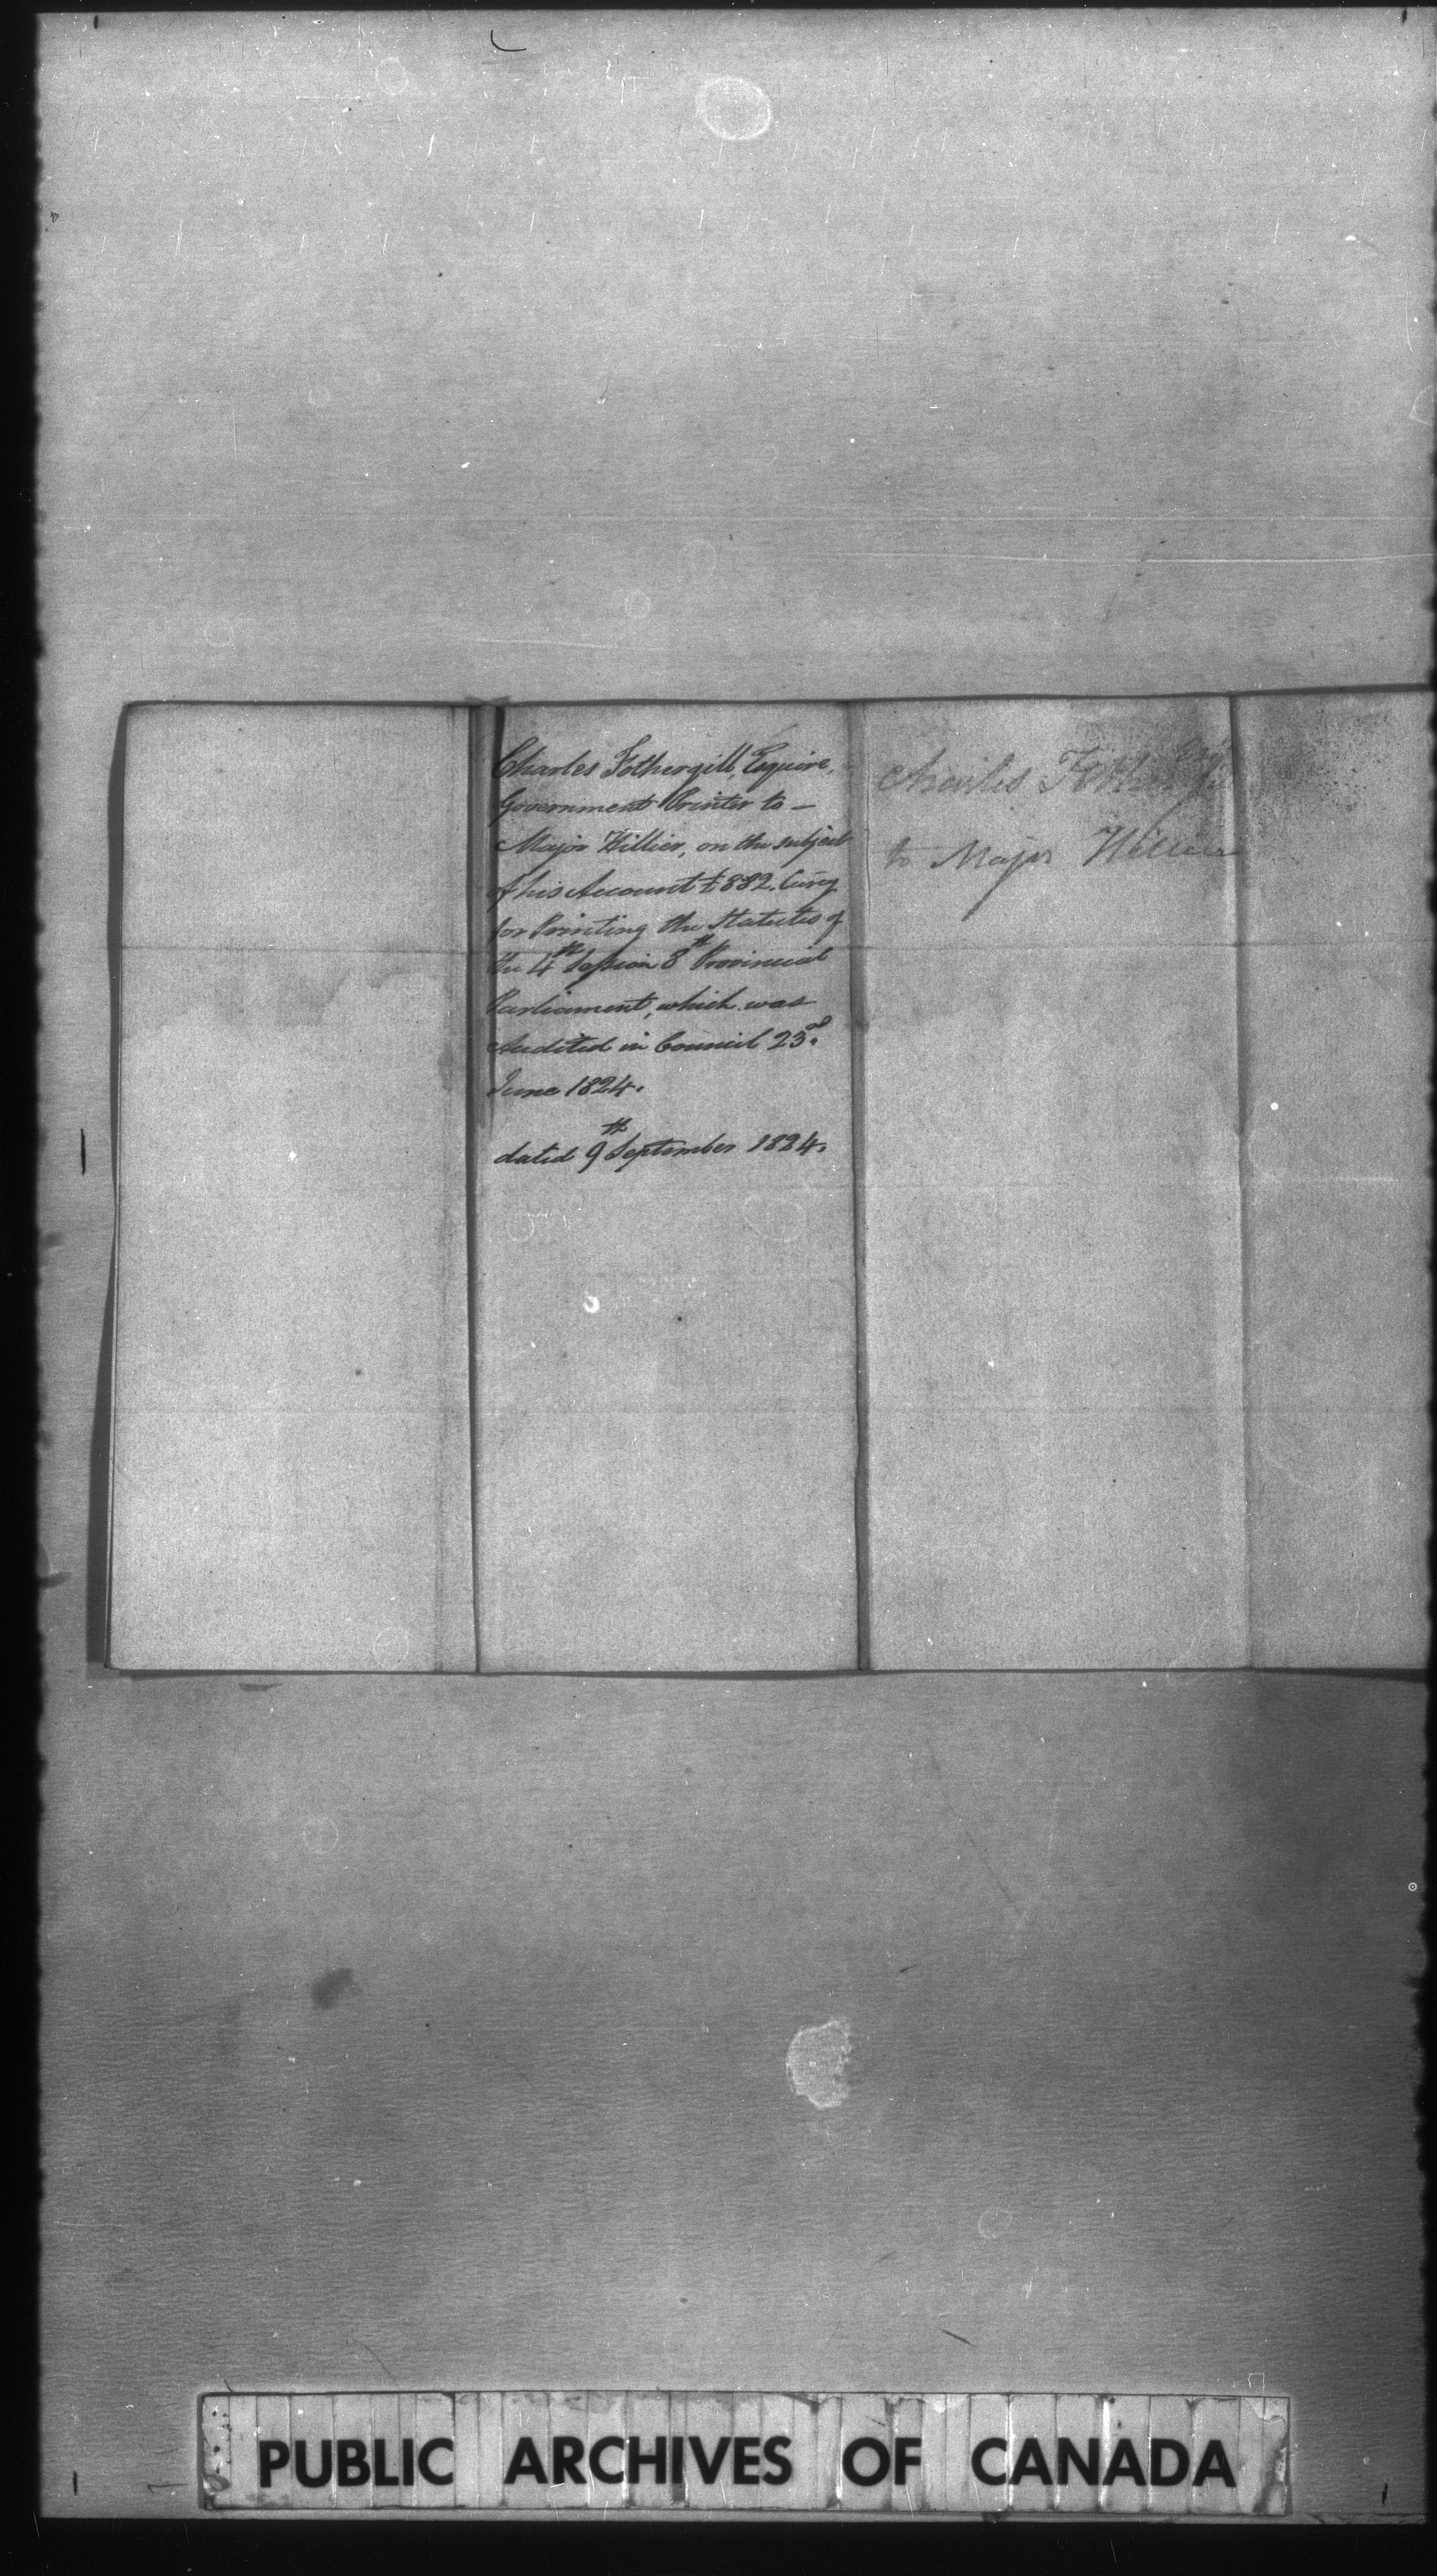 Charles Fothergill, Esquire,
Government Printer to —
Major Hillier, on the subject
of his Account £882. Curcy
for Printing the Statutes of
the 4th Session 8th Provincial
Parliament, which was
Audited in Council 23d
June 1824.
dated 9th September 1824.
Charles Esqr
to Major Hillier
PUBLIC ARCHIVES OF CANADA